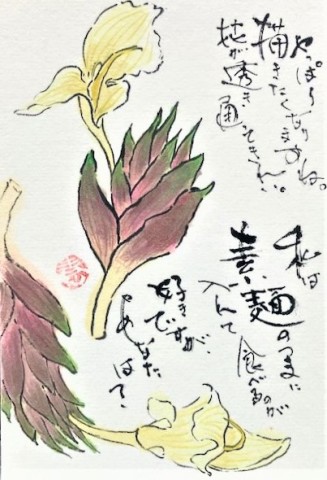 やっぱり
描きたくなりますね。
花が透き通
ってきれい。
私は
素麺のつまに
入れて食べるのが
好きですが、
あなた
は?